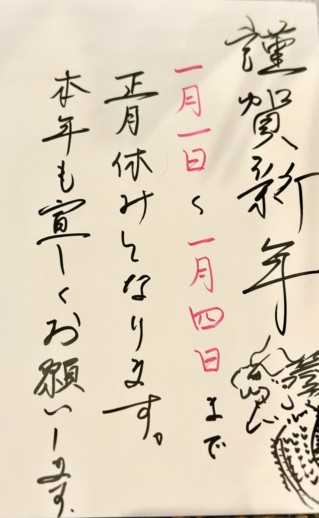 謹賀新年
一月一日〜一月四日まで
正月休みとなります。
本年も宜しくお願いします。